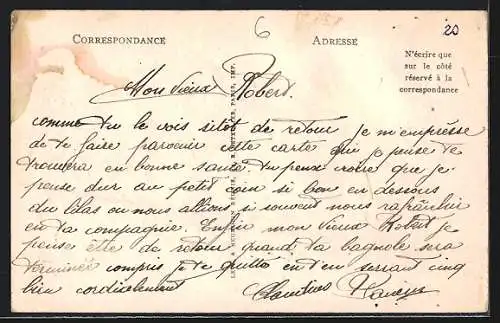 6
20
CORRESPONDANCE
ADRESSE
N'écrire que
sur le côté
réservé à la
correspondance
Mon vieux Robert.
comme tu le vois sitôt de retour je m'empresse
de te faire parvenir cette carte qui je pense te
trouvera en bonne santé. tu peux croire que je
pense dur au petit coin si bon en dessous
du lilas ou nous allions si souvent nous rafraichir
en ta compagnie. Enfin mon vieux Robert je
pense être de retour quand ta bagnole sera
terminée compris je te quitte en t'en serrant cinq
bien cordialement